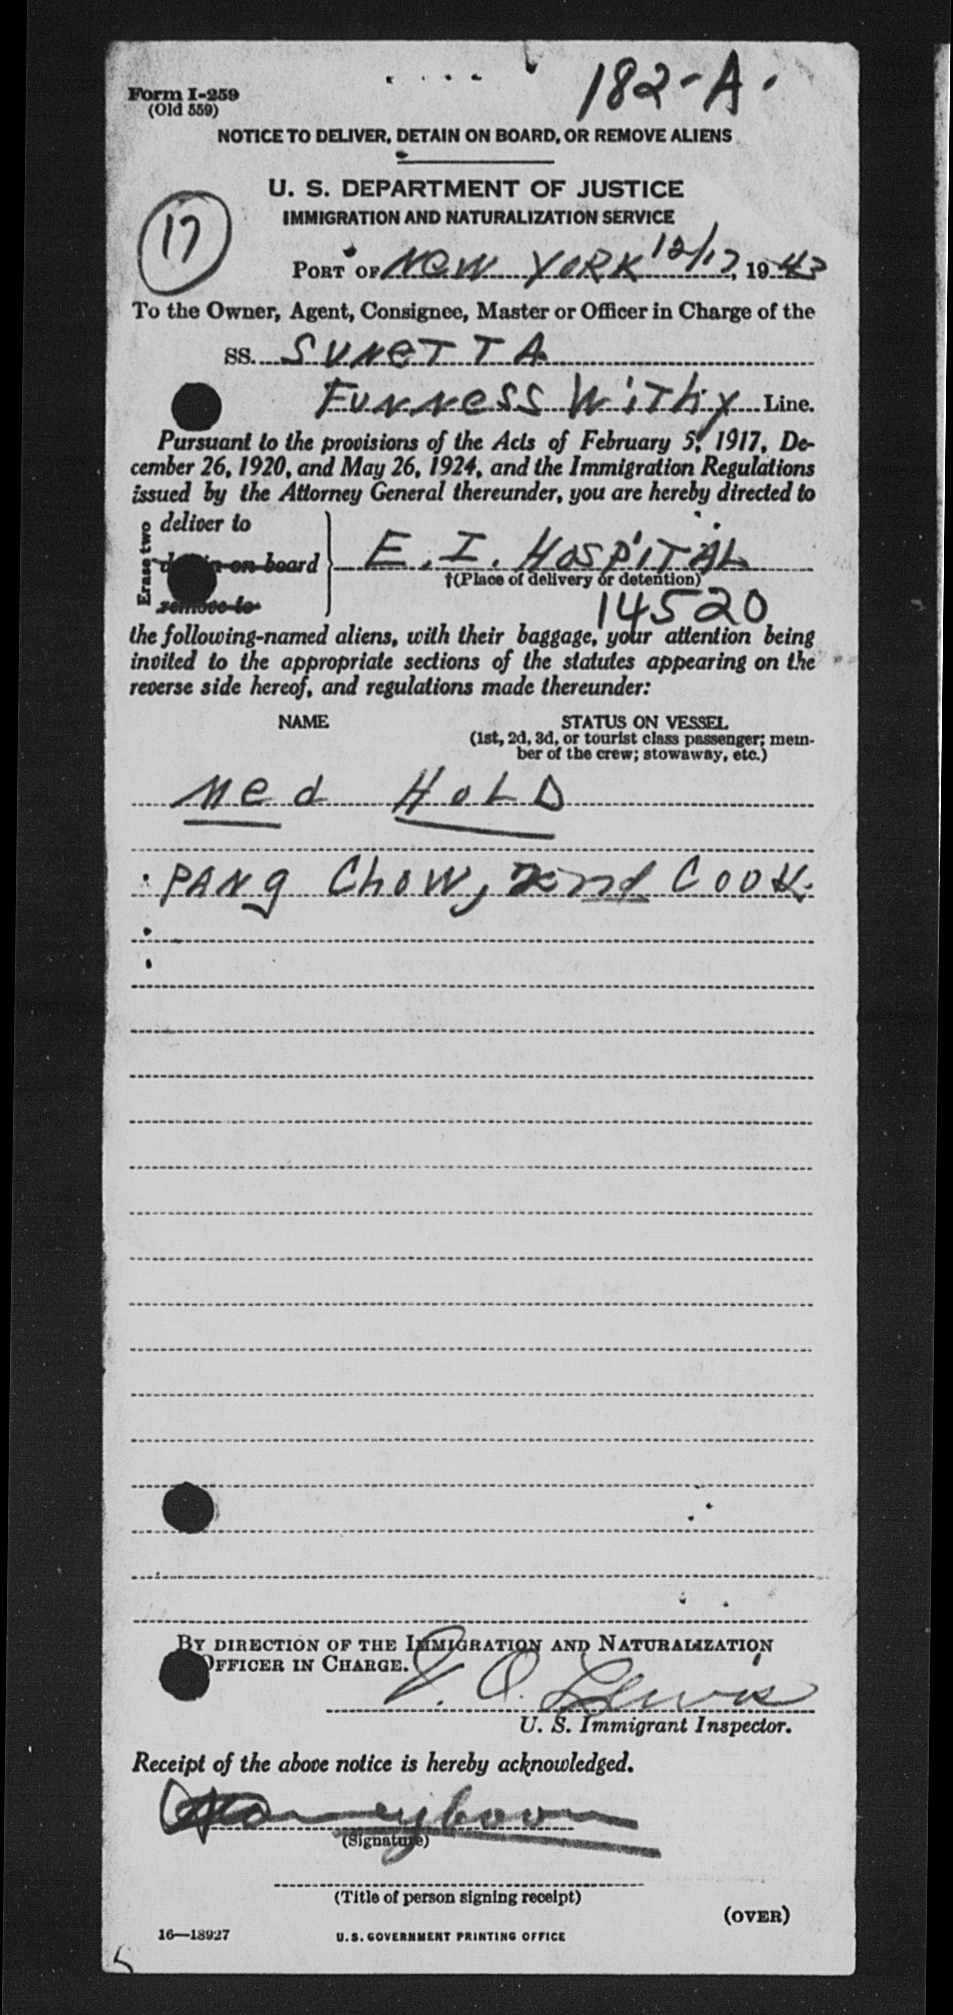 182-A.
Form I-259
(Old 559)
NOTICE TO DELIVER, DETAIN ON BOARD, OR REMOVE ALIENS
U. S. DEPARTMENT OF JUSTICE
IMMIGRATION AND NATURALIZATION SERVICE
17
PORT OF NEW YORK 12/17, 1943
To the Owner, Agent, Consignee, Master or Officer in Charge of the
SS. SUNETTA
FURNESS WiThy Line.
Pursuant to the provisions of the Acts of February 5, 1917, De-
cember 26, 1920, and May 26, 1924, and the Immigration Regulations
issued by the Attorney General thereunder, you are hereby directed to
Erase two
deliver to
on board
remove to
E. I. HOSPITAL
†(Place of delivery or detention)
14520
the following-named aliens, with their baggage, your attention being
invited to the appropriate sections of the statutes appearing on the
reverse side hereof, and regulations made thereunder:
NAME STATUS ON VESSEL
(1st, 2d, 3d, or tourist class passenger; mem-
ber of the crew; stowaway, etc.)
Med HOLD
PANg ChOW, 2nd COOK.
BY DIRECTION OF THE IMMIGRATION AND NATURALIZATION
OFFICER IN CHARGE.
Lewis
U. S. Immigrant Inspector.
Receipt of the above notice is hereby acknowledged.
(Signature)
(Title of person signing receipt)
(OVER)
16—18927 U. S. GOVERNMENT PRINTING OFFICE
5